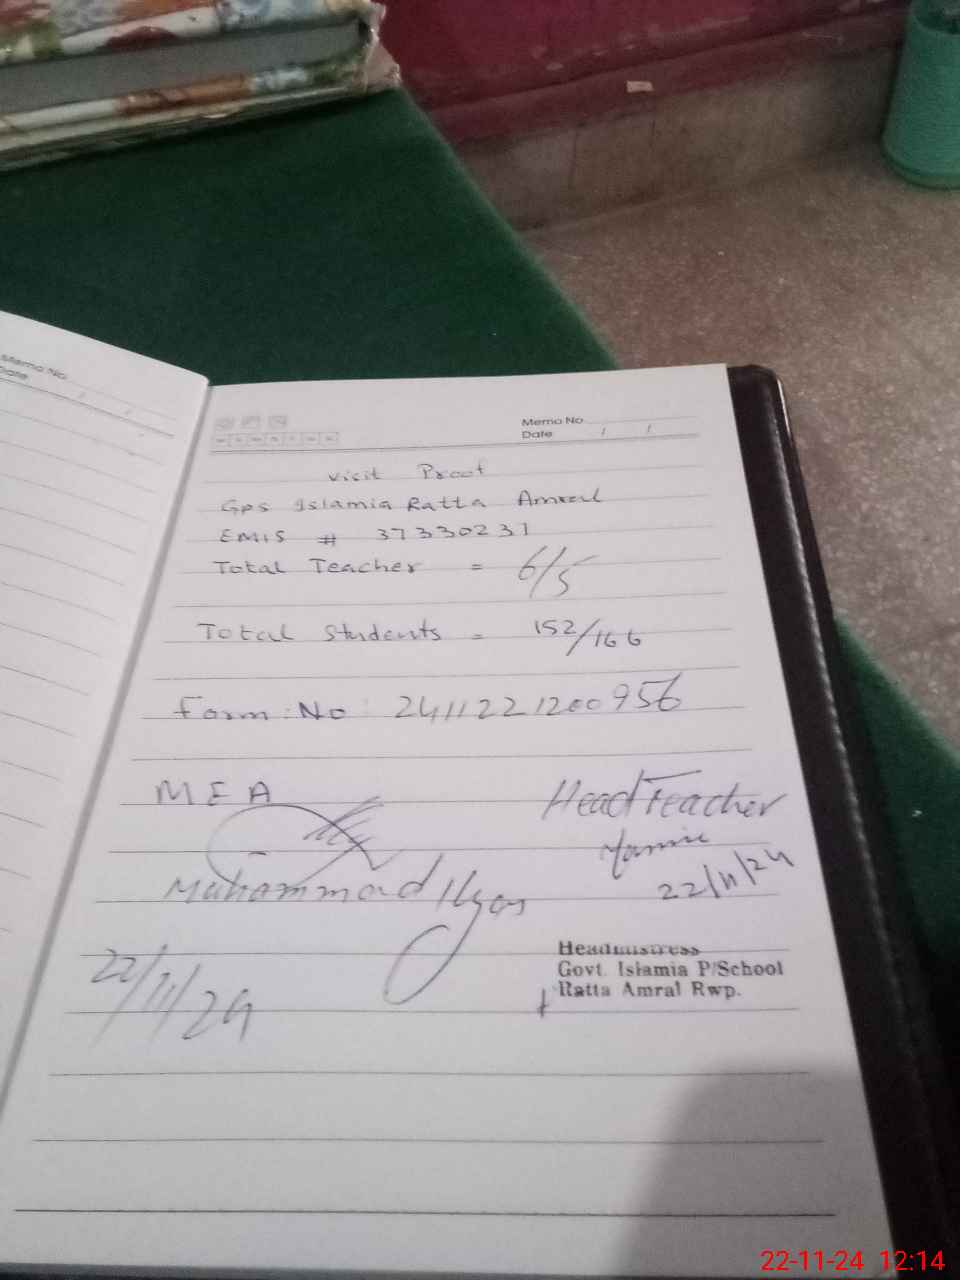 Memo No
Date
Memo No.
Date / /
Visit Proof
Gps Islamia Ratta Amral
EMIS # 37330231
Total Teacher = 6/5
Total Students = 152/166
Form No: 2411221200956
MEA
Head Teacher
Muhammad Ilyas
22/11/24
22/11/24
Headmistress
Govt. Islamia P/School
Ratta Amral Rwp.
22-11-24 12:14